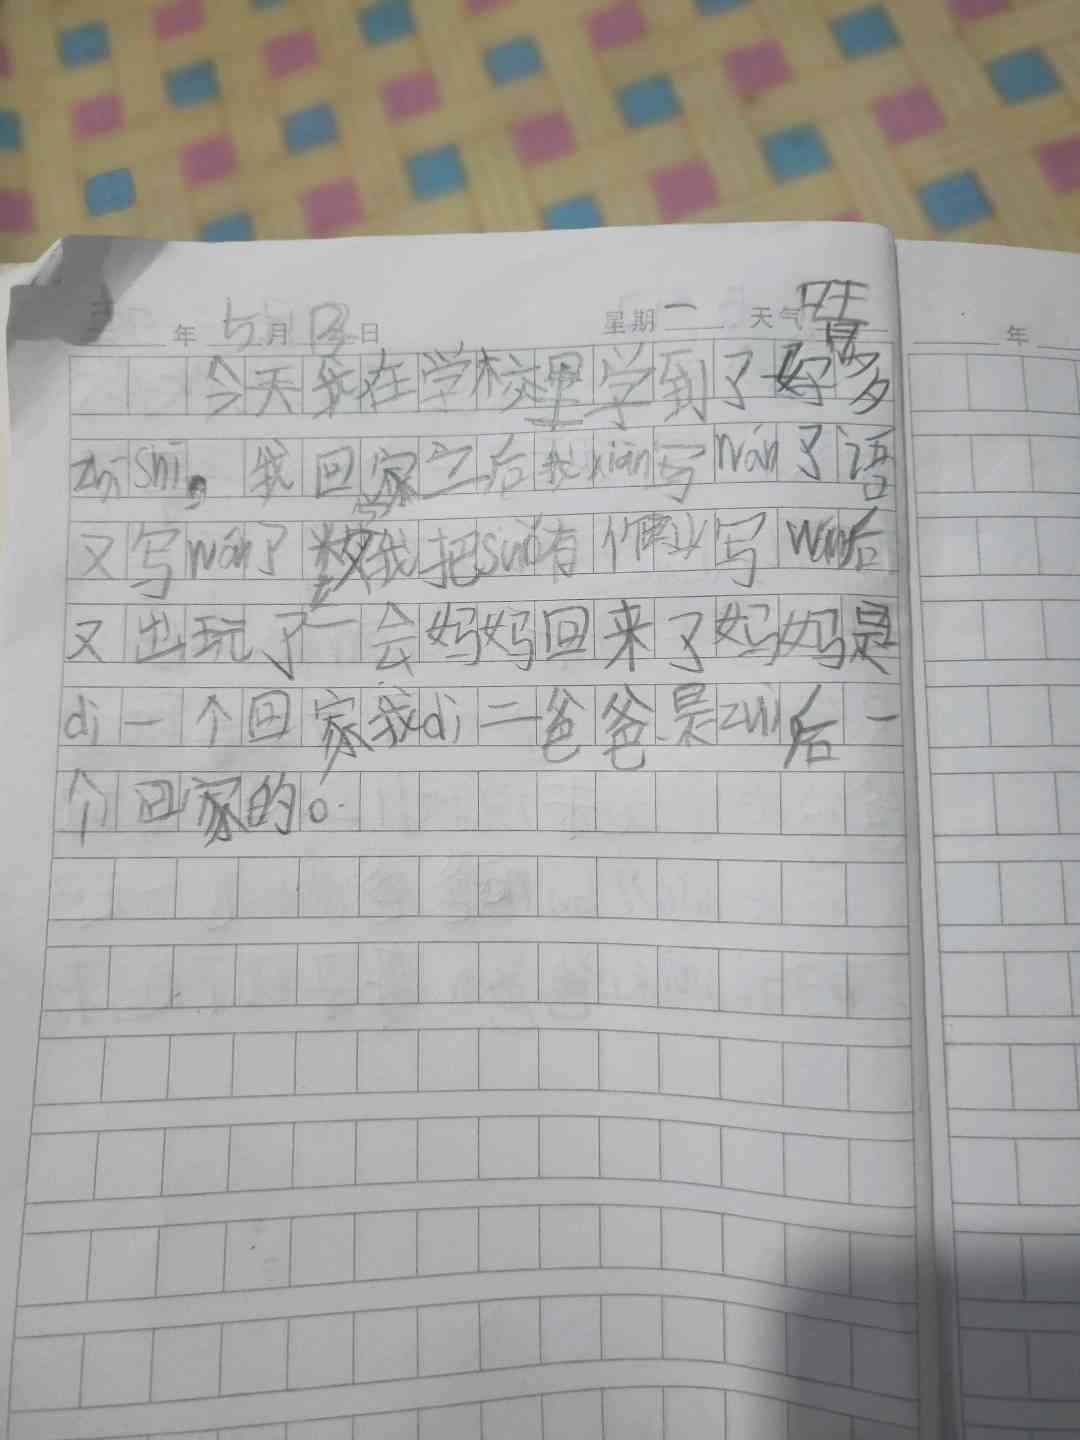 年 五月 13日 星期一 天气
今天我在学校里学到了好多
zhī shi，我回家之后我xiān写wán了语
又写wán了数学我把suǒ有作业写wán后
又出玩了一会妈妈回来了妈妈是
di一个回家我di二爸爸是zui后一
个回家的。
年